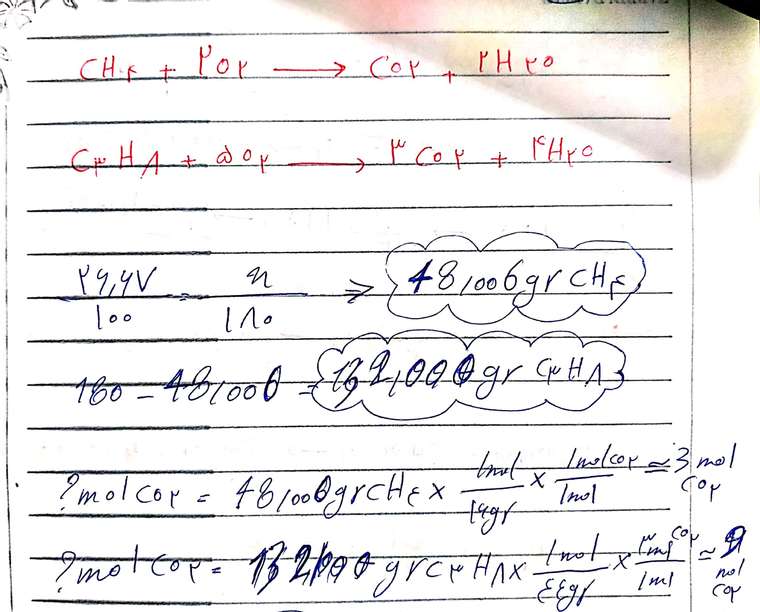 CH۴ + ۲O۲ → CO۲ + ۲H۲O
C۳H۸ + ۵O۲ → ۳CO۲ + ۴H۲O
۲۶,۶۷/۱۰۰ = x/۱۸۰ ⇒ 48,006gr CH۴
180 - 48,006 = 132,000gr C۳H۸
?mol CO۲ = 48,006gr CH٤ × 1mol/16gr × 1mol CO۲/1mol ≈ 3 mol CO۲
?mol CO۲ = 132,000 gr C۳H۸ × 1mol/٤٤gr × ۳mol CO۲/1mol ≈ 9 mol CO۲